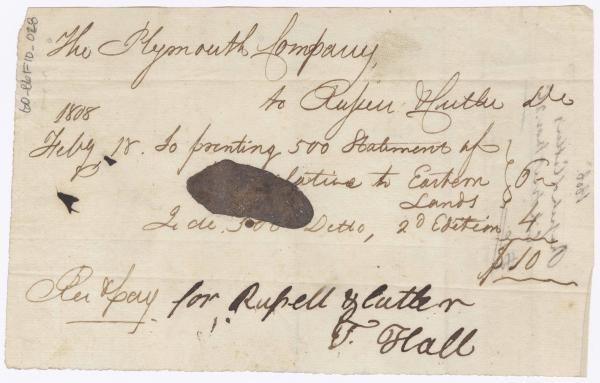 The Plymouth Company,
to Russell & Cutler Dr
1808
Feby 18. To printing 500 Statement of
relative to Eastern 6
Lands
To do. 500 Ditto, 2d Edition 4
$10
Rec'd pay for Russell & Cutler
T. Hall
GD-B6F10-028